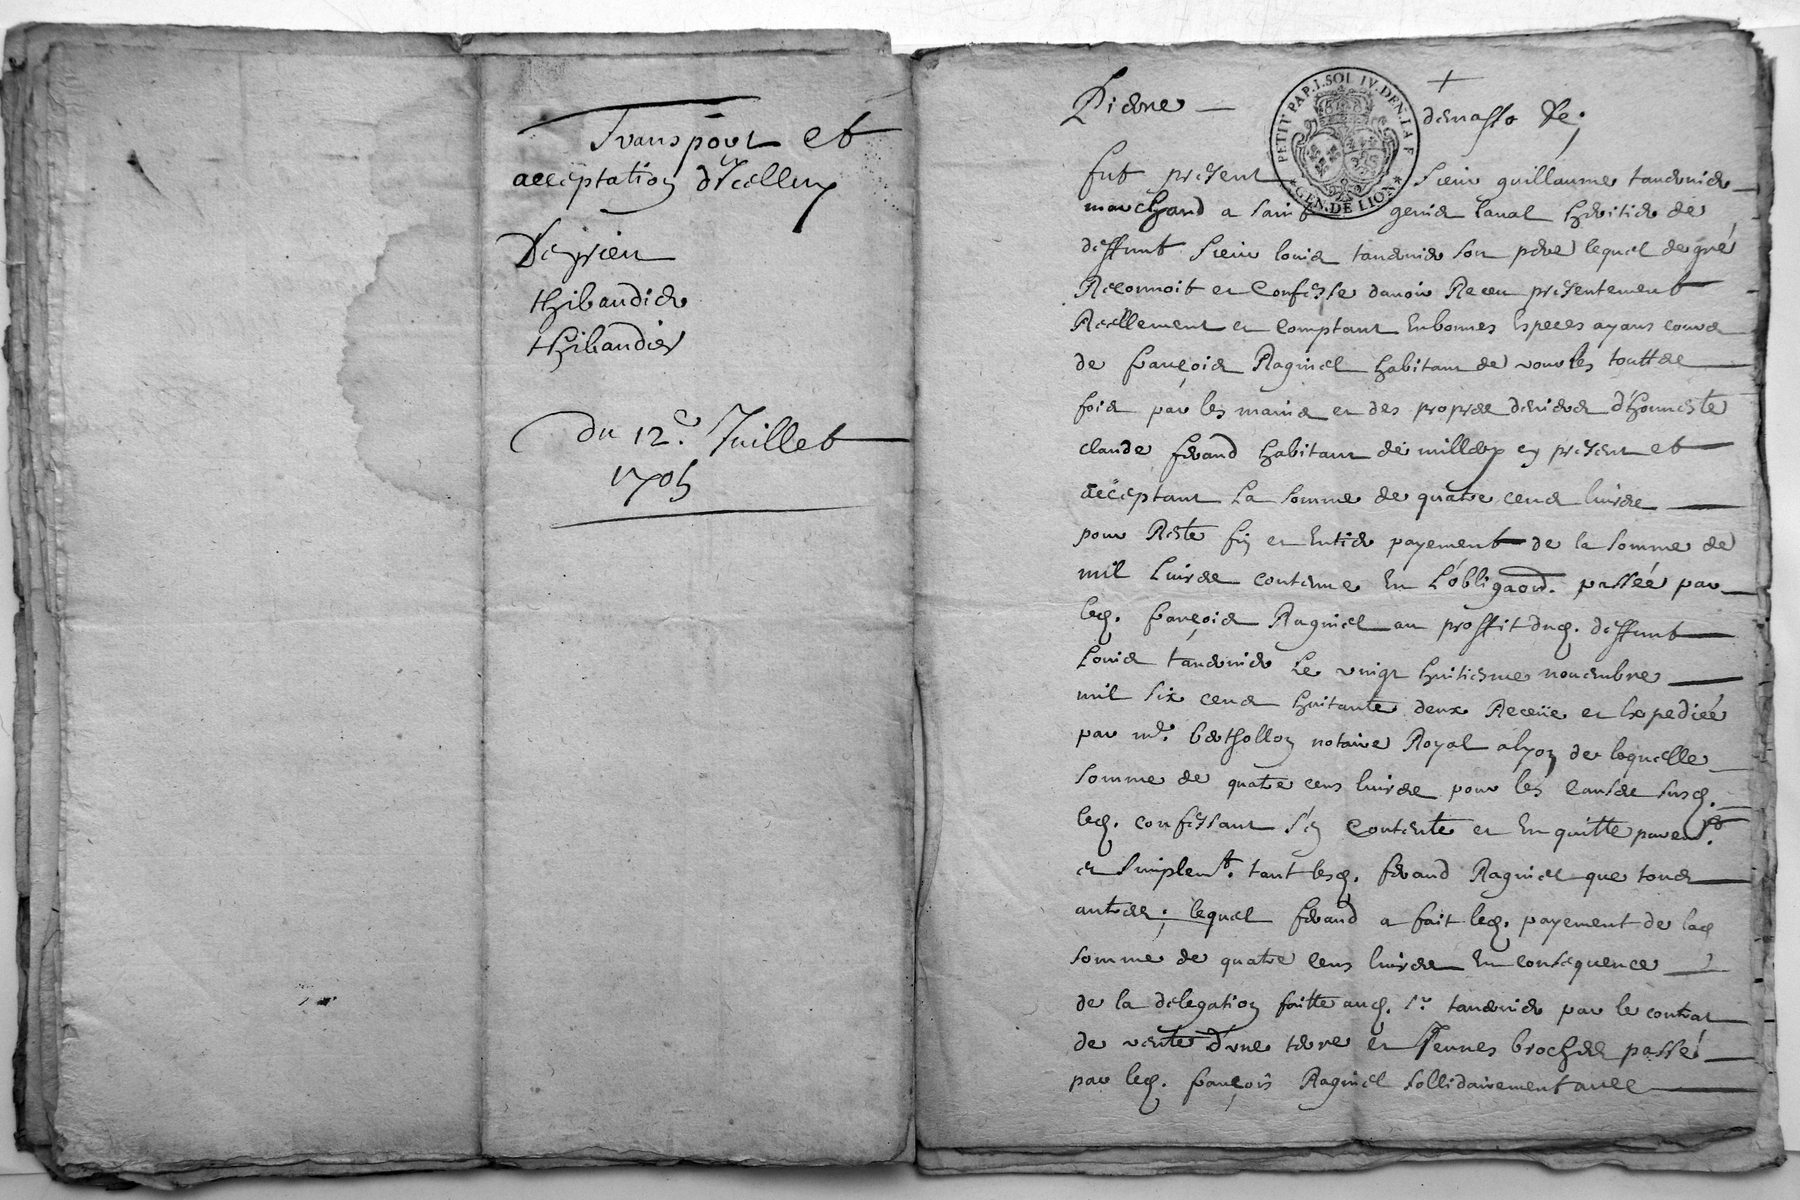 Transport et
acceptation d'Icelluy
Deprieu
thibaudier
thibaudier
du 12.e Juillet
1705
Pierre
PETIT PAP. 1. SOL IV. DEN. LA F
GEN. DE LION
fut present Sieur guillaume tauernier
marchand a saint genis laual heritier de
deffunt Sieur louis tauernier son pere lequel de gré
Reconnoit et Confesse dauoir Receu presentement
Reellement et comptant En bonnes Especes ayans cours
de françois Ragniel habitant de vourles touttes
fois par les mains et des propres deniers d'honneste
claude feraud habitant de millery cy present et
acceptant La somme de quatre cens liures
pour Reste fin et Entier payement de la somme de
mil liures contenue En L'obligaon. passée par
led. françois Ragniel au proffit dud. deffunt
Louis tauernier Le vingt huitiesme nouembre
mil six cens huitante deux Receüe et Expediée
par me. bertholloy notaire Royal a lyon de laquelle
somme de quatre cens liures pour les causes susd.
led. confessant s'en Contente et En quitte purem.t
et simplem.t tant lesd. feraud Ragniel que tous
autres; lequel feraud a fait led. payement de lad
somme de quatre cens liures En consequence
de la delegation faitte aud. Sr tauernier par le contrat
de vente d'vne terre et brochés passé
par led. françois Ragniel sollidairement auec